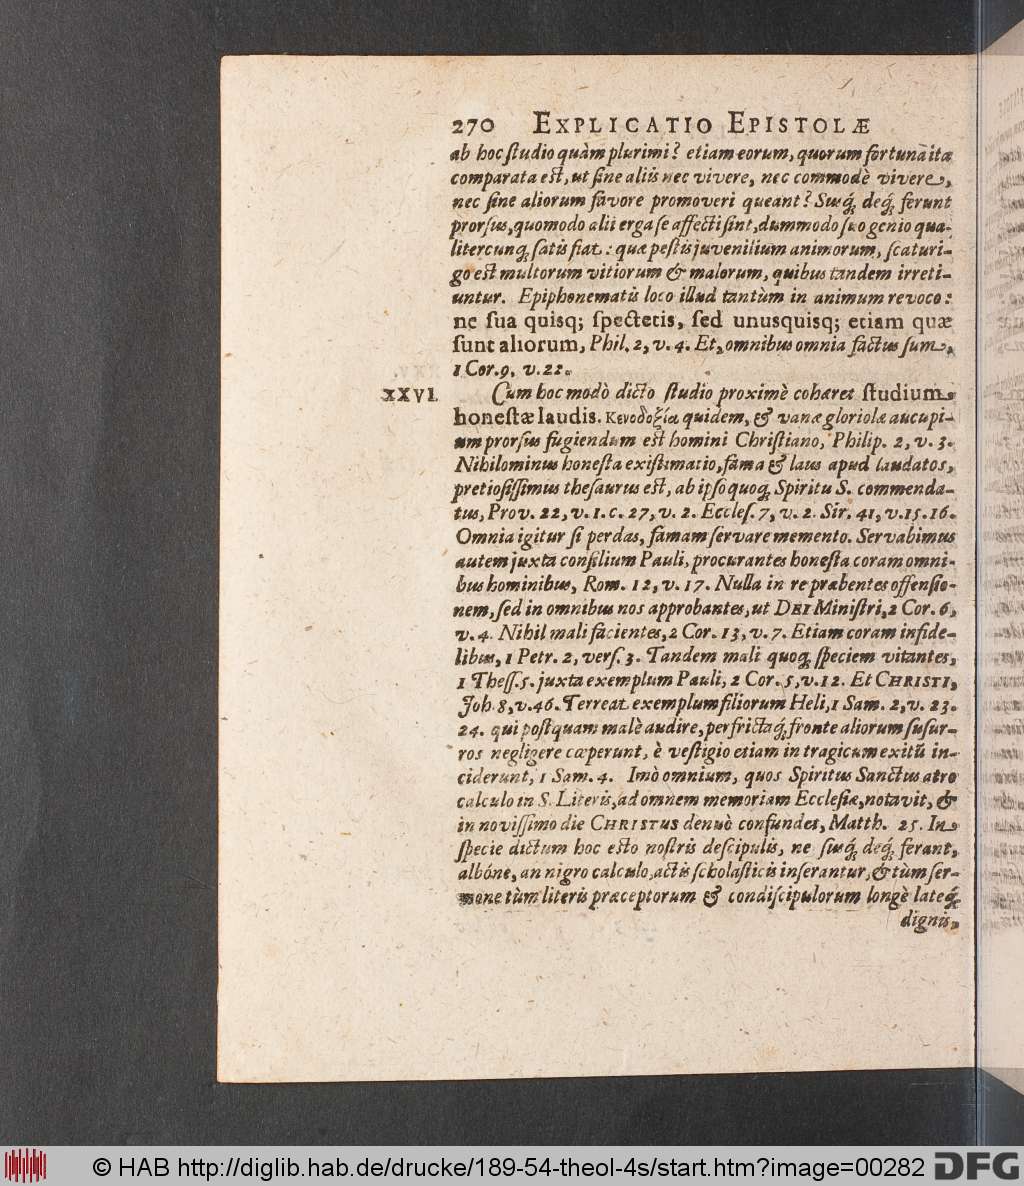 270 EXPLICATIO EPISTOLÆ
ab hoc ſtudio quàm plurimi? etiam eorum, quorum fortunā ita
comparata eſt, ut ſine aliis nec vivere, nec commodè vivere,
nec ſine aliorum favore promoveri queant? Suq́; deq́; ferunt
prorſus, quomodo alii erga ſe affecti ſint, dummodo ſuo genio qua-
litercunq; ſatis fiat: quæ peſtis juvenilium animorum, ſcaturi-
go eſt multorum vitiorum & malorum, quibus tandem irreti-
untur. Epiphonematis loco illud tantùm in animum revoco:
ne ſua quisq; ſpectetis, ſed unusquisq; etiam quæ
ſunt aliorum, Phil. 2, v. 4. Et, omnibus omnia factus ſum,
1 Cor. 9. v. 22.
XXVI. Cum hoc modò dicto ſtudio proximè cohæret ſtudium
honeſtæ laudis. Κενοδοξία quidem, & vanæ gloriolæ aucupi-
um prorſus fugiendum eſt homini Chriſtiano, Philip. 2, v. 3.
Nihilominus honeſta exiſtimatio, fama & laus apud laudatos,
pretioſiſſimus theſaurus eſt, ab ipſo quoq; Spiritu S. commenda-
tus, Prov. 22, v. 1. c. 27, v. 2. Eccleſ. 7, v. 2. Sir. 41, v. 15. 16.
Omnia igitur ſi perdas, famam ſervare memento. Servabimus
autem juxta conſilium Pauli, procurantes honeſta coram omni-
bus hominibus, Rom. 12, v. 17. Nulla in re præbentes offenſio-
nem, ſed in omnibus nos approbantes, ut DEI Miniſtri, 2 Cor. 6,
v. 4. Nihil mali facientes, 2 Cor. 13, v. 7. Etiam coram infide-
libus, 1 Petr. 2, verſ. 3. Tandem mali quoq; ſpeciem vitantes,
1 Theſſ. 5. juxta exemplum Pauli, 2 Cor. 5, v. 12. Et CHRISTI,
Joh. 8, v. 46. Terreat exemplum filiorum Heli, 1 Sam. 2, v. 23.
24. qui poſtquam malè audire, perfrictaq́; fronte aliorum ſuſur-
ros negligere cœperunt, è veſtigio etiam in tragicum exitū in-
ciderunt, 1 Sam. 4. Imò omnium, quos Spiritus Sanctus atro
calculo in S. Literis, ad omnem memoriam Eccleſiæ, notavit, &
in noviſſimo die CHRISTUS denuò confundet, Matth. 25. In
ſpecie dictum hoc eſto noſtris deſcipulis, ne ſuq́; deq́; ferant,
albóne, an nigro calculo, actis ſcholaſticis inſerantur, & tùm ſer-
mone tùm literis præceptorum & condiſcipulorum longè lateq́;
dignis,
© HAB http://diglib.hab.de/drucke/189-54-theol-4s/start.htm?image=00282 DFG